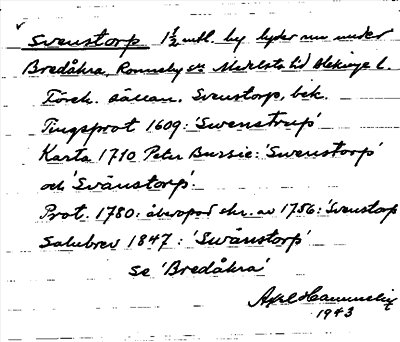 Svenstorp 1½ mtl. by lyder nu under
Bredåkra, Ronneby sn Medelsta hd Blekinge l.
Förek. sällan. Svenstorp, bek.
Tingsprot 1609: 'Swenstrup'
Karta 1710 Peter Bussie: 'Swenstorp'
och 'Swänstorp'.
Prot. 1780: åberopad skr. av 1756: 'Svenstorp
Salubrev 1847: 'Swänstorp'
Se 'Bredåkra'
Axel
1943